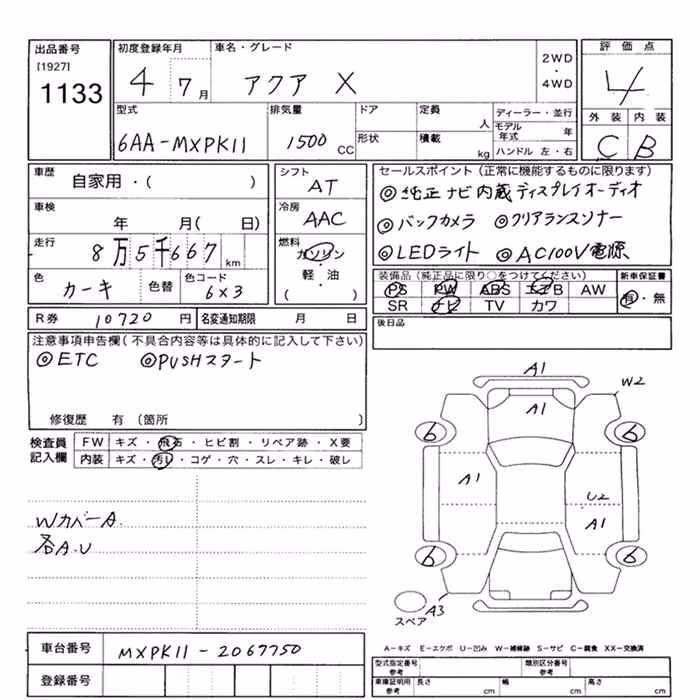 出品番号 初度登録年月 車名・グレード 2WD ・ 4WD 評価点
[1927]
1133 4 7月 アクア X 4
型式 排気量 ドア 定員 人 ディーラー・並行 外装 内装
モデル年式 年
6AA-MXPK11 1500 CC 形状 積載 kg ハンドル 左・右 C B
車歴 自家用・( ) シフト AT セールスポイント (正常に機能するものに限ります)
◎純正ナビ内蔵ディスプレイオーディオ
車検 年 月( 日) 冷房 AAC ◎バックカメラ ◎クリアランスソナー
走行 8万5千667km 燃料 ガソリン・軽・油 ( ) ◎LEDライト ◎AC100V電源
色 カーキ 色替 色コード 6×3 装備品 (純正品に限り○をつけてください) 新車保証書
PS PW ABS エアB AW 有・無
SR ナビ TV カワ
R券 10720円 名変通知期限 月 日 後日品
注意事項申告欄(不具合内容等は具体的に記入して下さい)
◎ETC ◎PUSHスタート
修復歴 有 (箇所 )
検査員記入欄 FW キズ・飛石・ヒビ割・リペア跡・X要
内装 キズ・汚レ・コゲ・穴・スレ・キレ・破レ
WカバーA.
各A.U
A1
W2
A1
6 6
A1
U2
A1
6 6
A3
スペア
車台番号 MXPK11-2067750
A-キズ E-エクボ U-凹み W-補修跡 S-サビ C-腐食 XX-交換済
登録番号 型式指定番号 参考 類別区分番号 参考
車庫証明用 参考 長さ cm 幅 cm 高さ cm